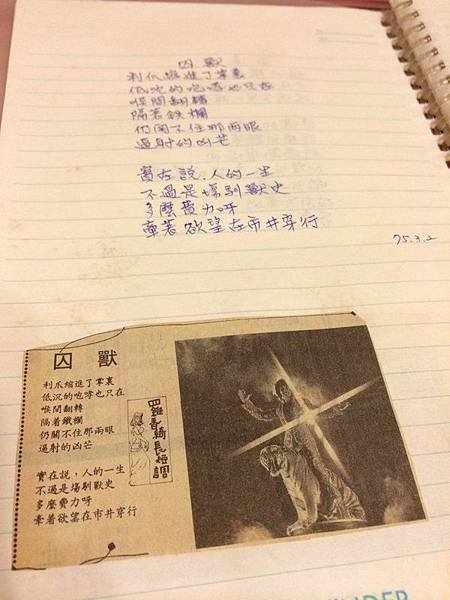 囚 獸
利爪縮進了掌裏
低沉的咆哮也只在
喉間翻轉
隔着鉄欄
仍関不住那兩眼
逼射的凶芒
實在說.人的一生
不過是場馴獸史
多麼費力呀
牽着欲望在市井穿行
75.3.2
囚 獸
利爪縮進了掌裏
低沉的咆哮也只在
喉間翻轉
隔着鐵欄
仍關不住那兩眼
逼射的凶芒
實在說,人的一生
不過是場馴獸史
多麼費力呀
牽着欲望在市井穿行